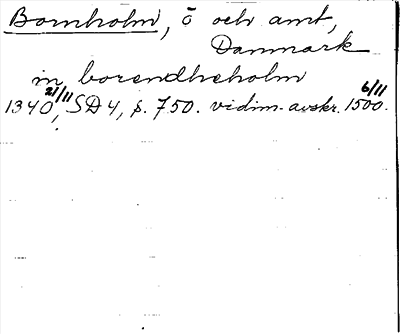 Bornholm, ö och amt,
Danmark
in borendheholm
1340 21/11, SD 4, p. 750. vidim. avskr. 1500 6/11.